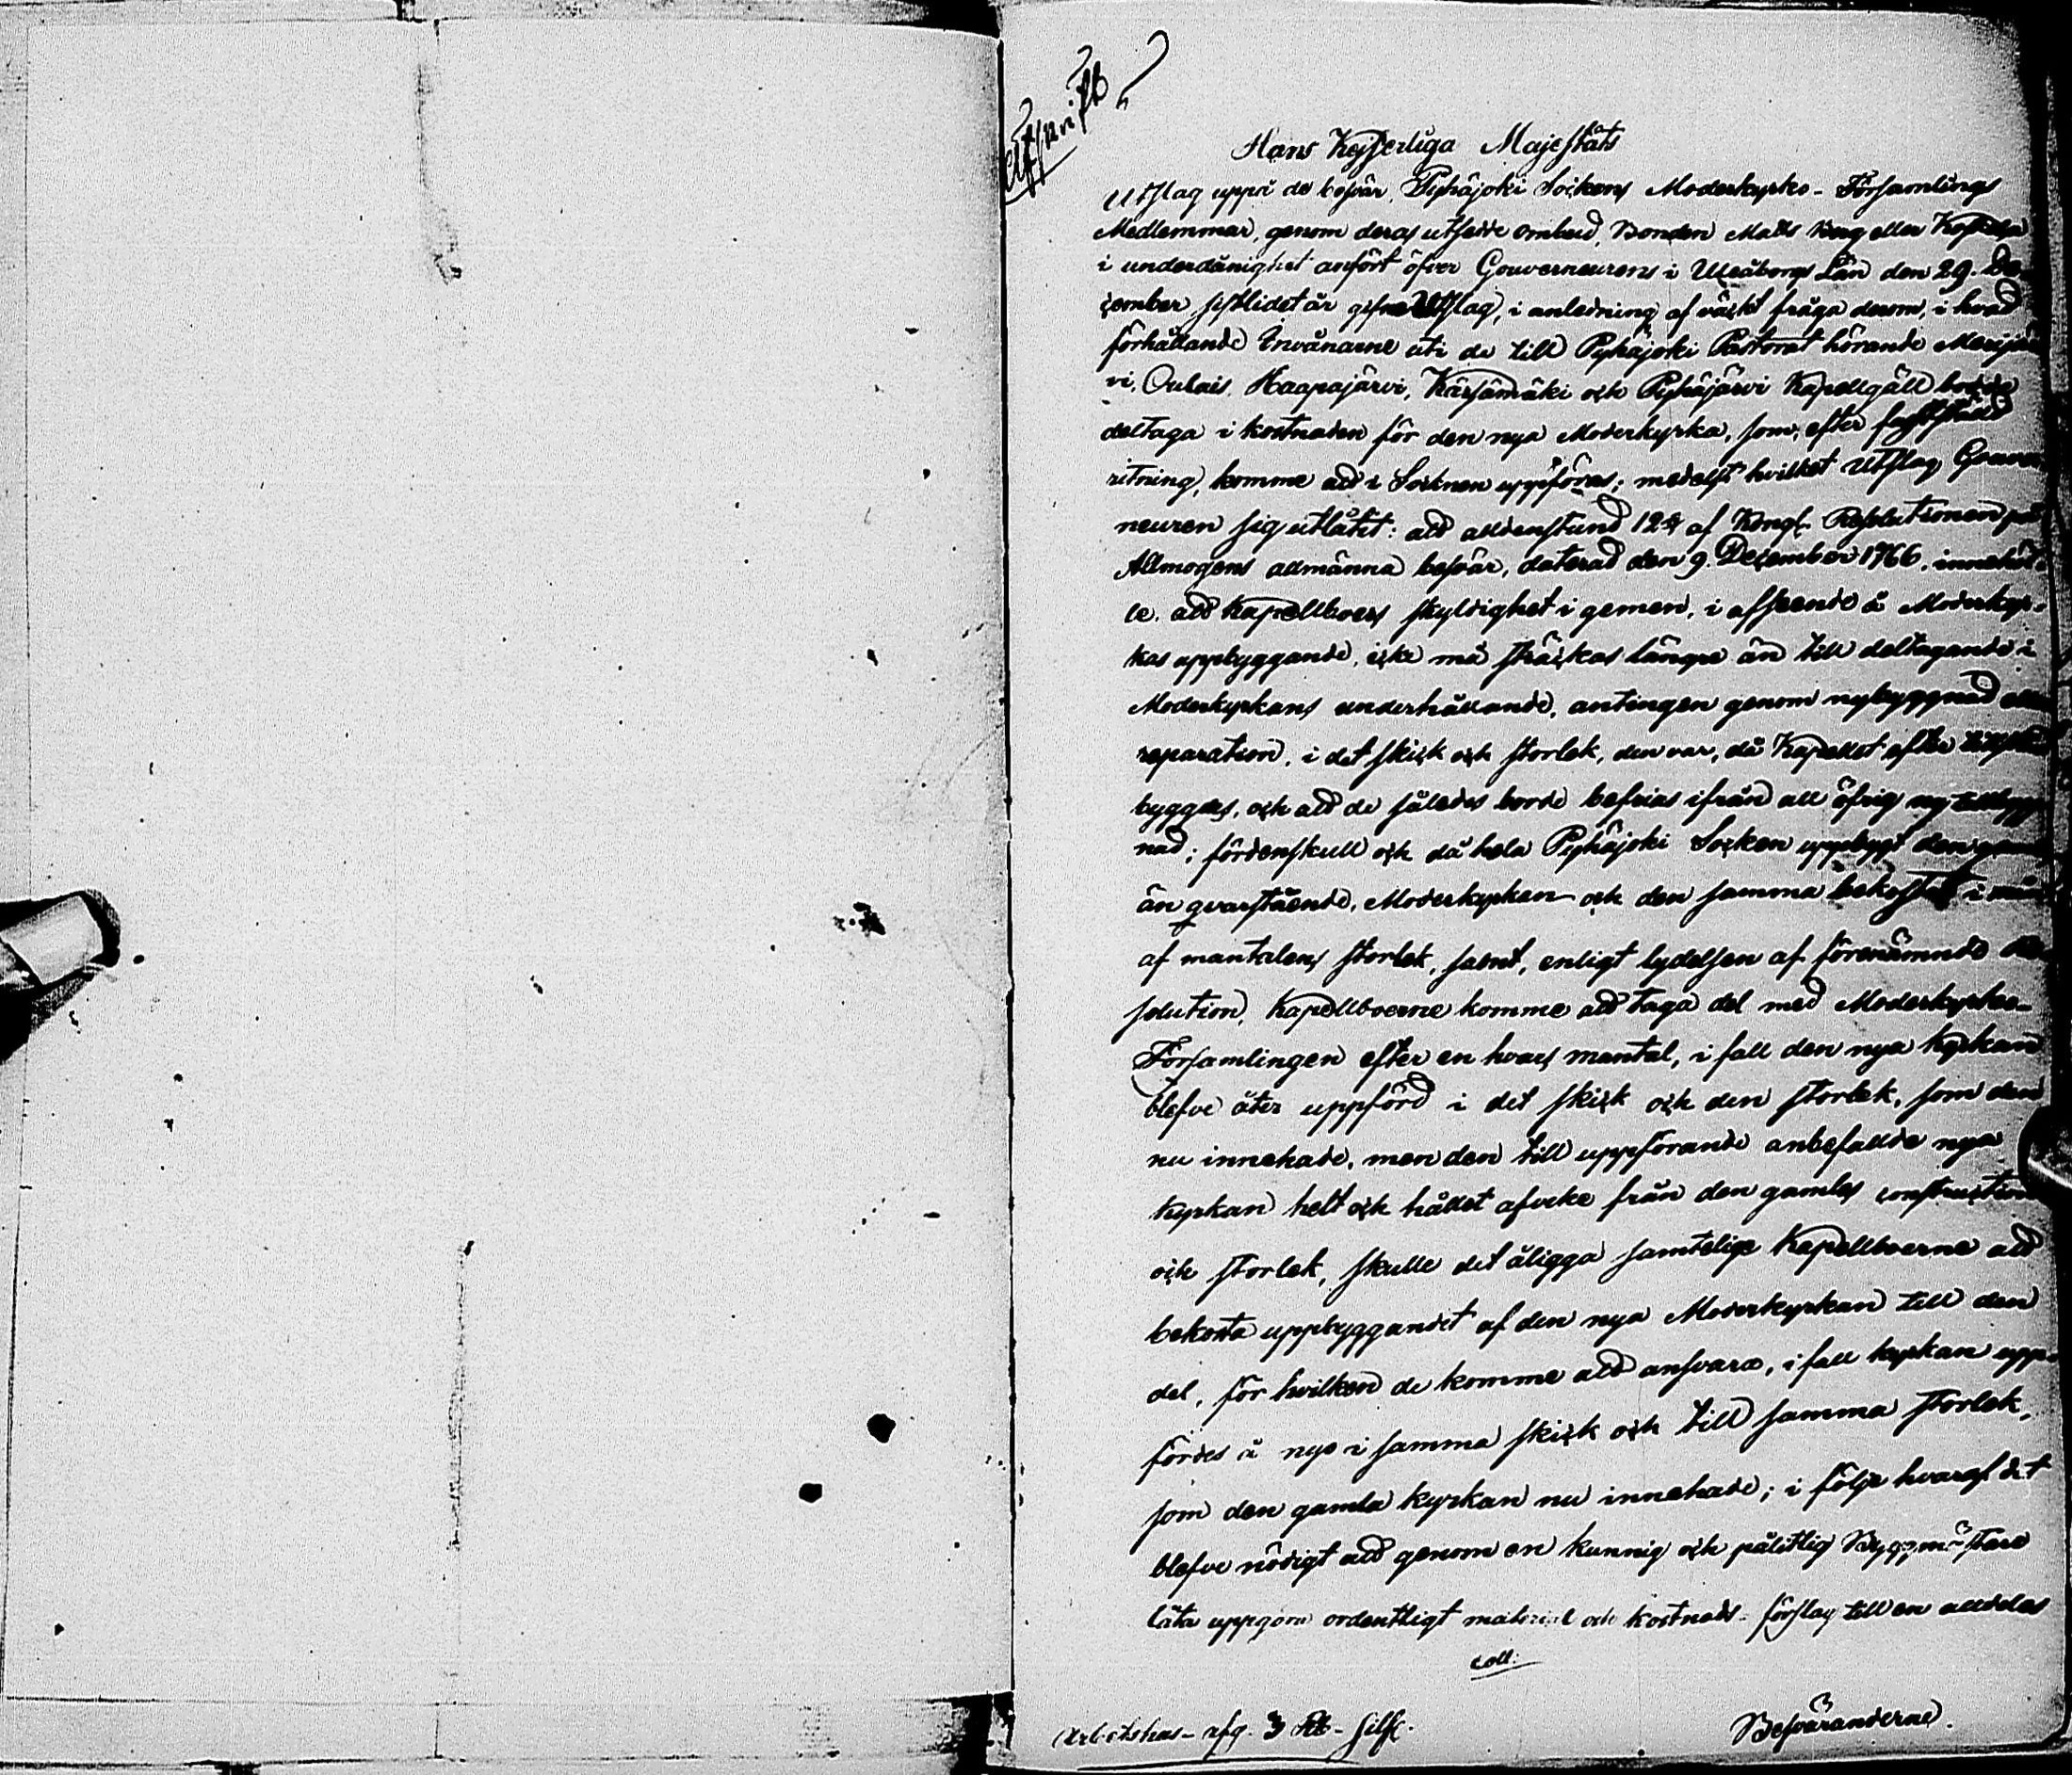 Afskrift
Hans Kejserliga Majestäts
Utslag uppå de besvär, Pyhäjoki Sockens Moderkyrko-Församlings
Medlemmar, genom deras utsedde ombud, Bonden Matts eller
i underdånighet anfört öfver Gouverneurens i Uleåborgs Län den 29. De-
cember sistlidet år gifne Utslag, i anledning af väckt fråga derom, i hvad
förhållande Invånarne uti de till Pyhäjoki Pastorat hörande Merijär-
vi, Oulais, Haapajärvi, Kärsämäki och Pyhäjärvi Kapellgäll borde
deltaga i kostnaden för den nya Moderkyrka, som, efter fastställd
ritning, komme att i Socknen uppföras; medelst hvilket Utslag Gouver-
neuren sig utlåtit: att alldenstund 12 § af Kongl. Resolutionen på
Allmogens allmänna besvär, daterad den 9. December 1766, innehöl-
le, att Kapellboers skyldighet i gemen, i afseende å Moderkyr-
kas uppbyggande, icke må sträckas längre än till deltagande i
Moderkyrkans underhållande, antingen genom nybyggnad eller
reparation, i det skick och storlek, den var, då Kapellet efter
byggdes, och att de således borde befrias ifrån all öfrig ny tillbygg-
nad; fördenskull och då hela Pyhäjoki Socken uppbygt den
än qvarstående, Moderkyrkan och den samma bekostat i mån
af mantalens storlek, samt, enligt lydelsen af förenämnde Re-
solution, Kapellboerne komme att taga del med Moderkyrko-
Församlingen efter en hvars mantal, i fall den nya Kyrkan
blefve åter uppförd i det skick och den storlek, som den
nu innehade, men den till uppförande anbefallde nya
kyrkan helt och hållet afveke från den gamlas construction
och storlek, skulle det åligga samtelige Kapellboerne att
bekosta uppbyggandet af den nya Moderkyrkan till den
del, för hvilken de komme att ansvara, i fall kyrkan upp-
fördes å nyo i samma skick och till samma storlek,
som den gamla kyrkan nu innehade; i följe hvaraf det
blefve nödigt att genom en kunnig och pålitlig Byggmästare
låta uppgöra ordentligt material och kostnads-förslag till en alldeles
Coll:
Arbetshus-afg. 3 silfr.
Besväranderne.